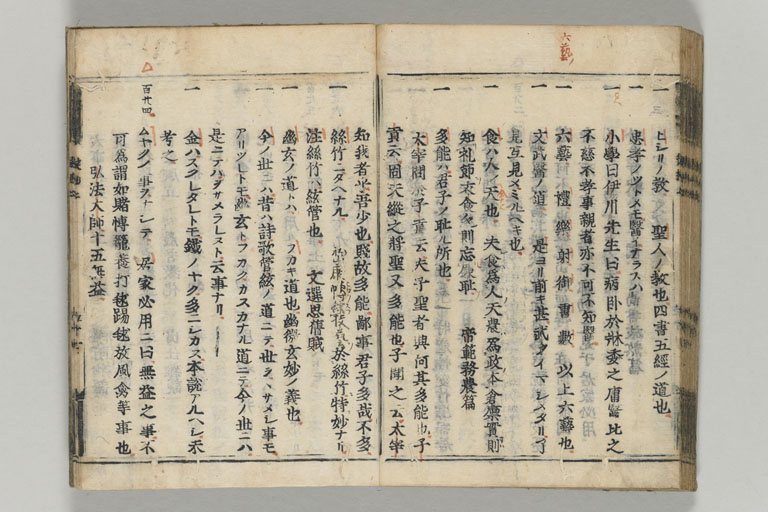 六藝
一 ヒシリノ教 聖人ノ教也四書五經ノ道也
一 忠孝ノツトメモ醫ニアラスハ
一 小學曰伊川先生曰病卧於牀委之庸醫比之
不慈不孝事親者亦不可不知醫
一 六藝 禮樂射御書數 以上六藝也
一 文武醫ノ道 是ヨリ前キ
見互見
一 食ハ人ノ天也 夫食爲人天農爲政本倉廩實則
知礼節衣食 則忘 耻 帝範務農篇
一 多能ハ君子ノ耻ル所也
太宰問 子貢云夫子聖者與何其多能也子
貢云固天縱之將聖又多能也子聞之云太宰
知我者乎吾少也賤故多能鄙事君子多哉不多
一 絲竹ニタヘナル 於絲竹特妙ナリ
注絲竹ハ絃管也 文選思舊賦
一 幽玄ノ道トハ フカキ道也幽微玄妙ノ義也
一 今ノ世ニハ 昔ハ詩歌管絃ノ道ニテ世ヲハサメシ事モ
アリツレトモ 玄トフカクカスカナル道ニテ今ノ世ニハ
是ニテハヲサメラレスト云事ナリ
一 金ハスクレタレトモ鐵ノヤク多ニシカス本説アルヘシ未
考之
百廿四
一 ムヤクノ事ヲナシテ 居家必用ニ曰無益之事不
可爲謂如賭博籠養打毬踢毬放風禽等事也
弘法大師十五無益